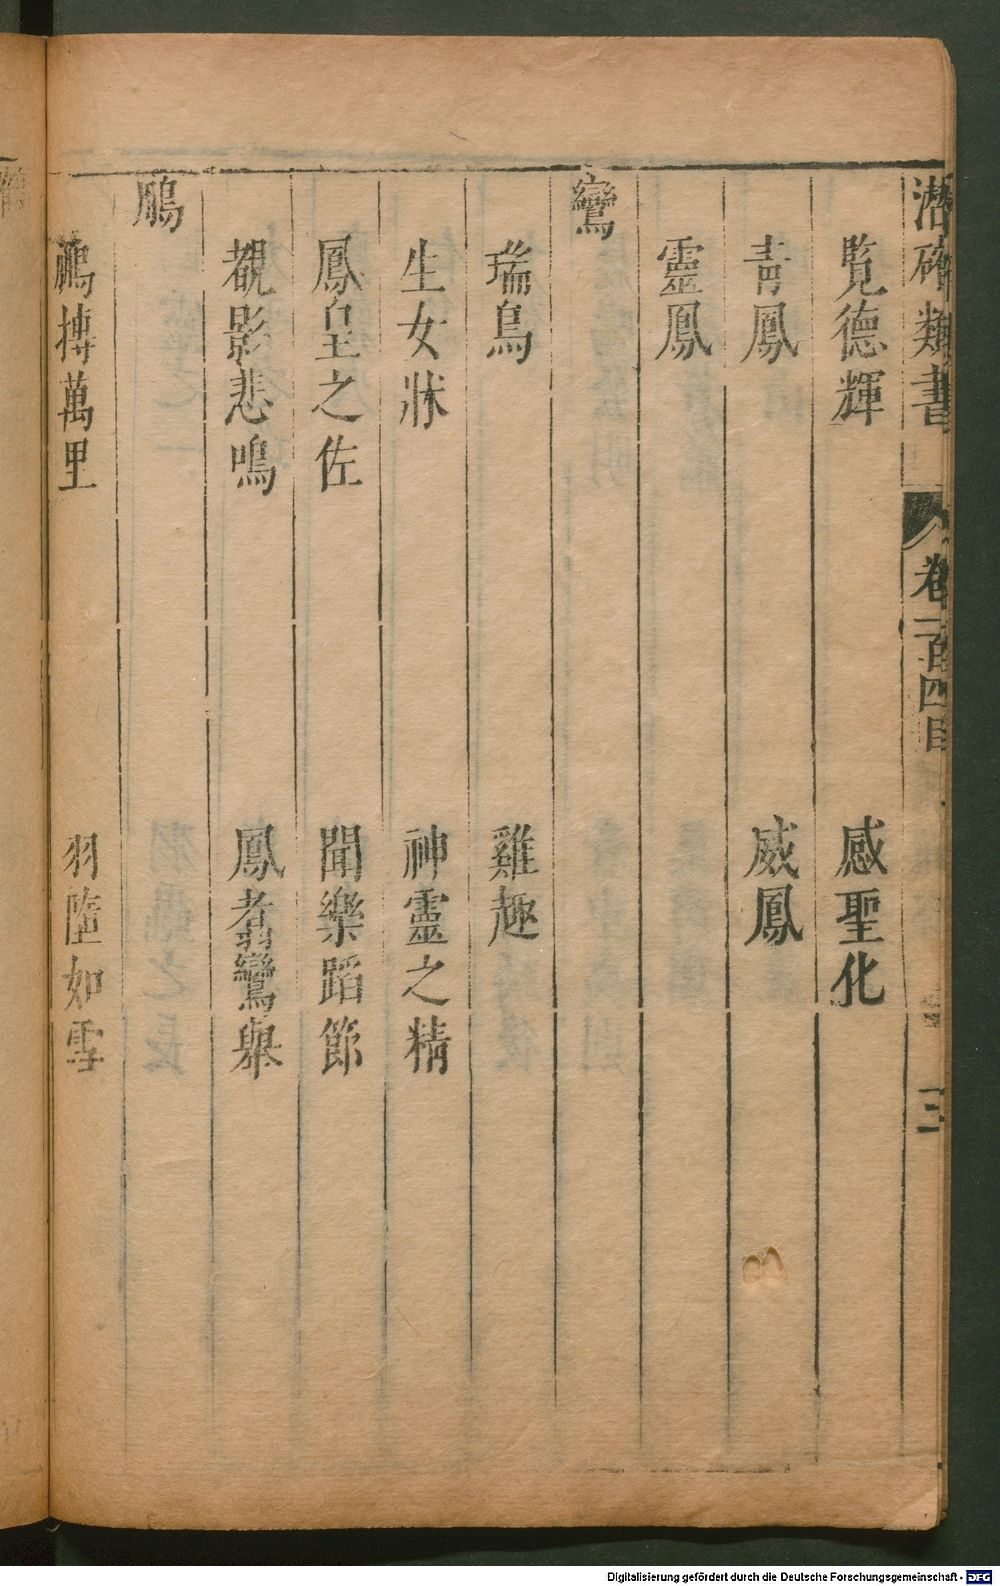 潛確類書 卷一百四目 三
覧德輝 感聖化
青鳳 威鳳
靈鳳
鸞
瑞鳥 雞趣
生女牀 神靈之精
鳳皇之佐 聞樂蹈節
覩影悲鳴 鳳翥鸞舉
鵬
鵬摶萬里 羽墮如雪
Digitalisierung gefördert durch die Deutsche Forschungsgemeinschaft - DFG